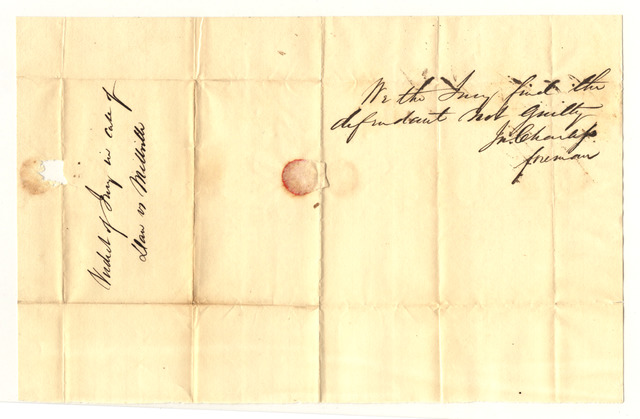 We the Jury find the
defendant not guilty
foreman
Verdict of Jury in case of
vs Mellville